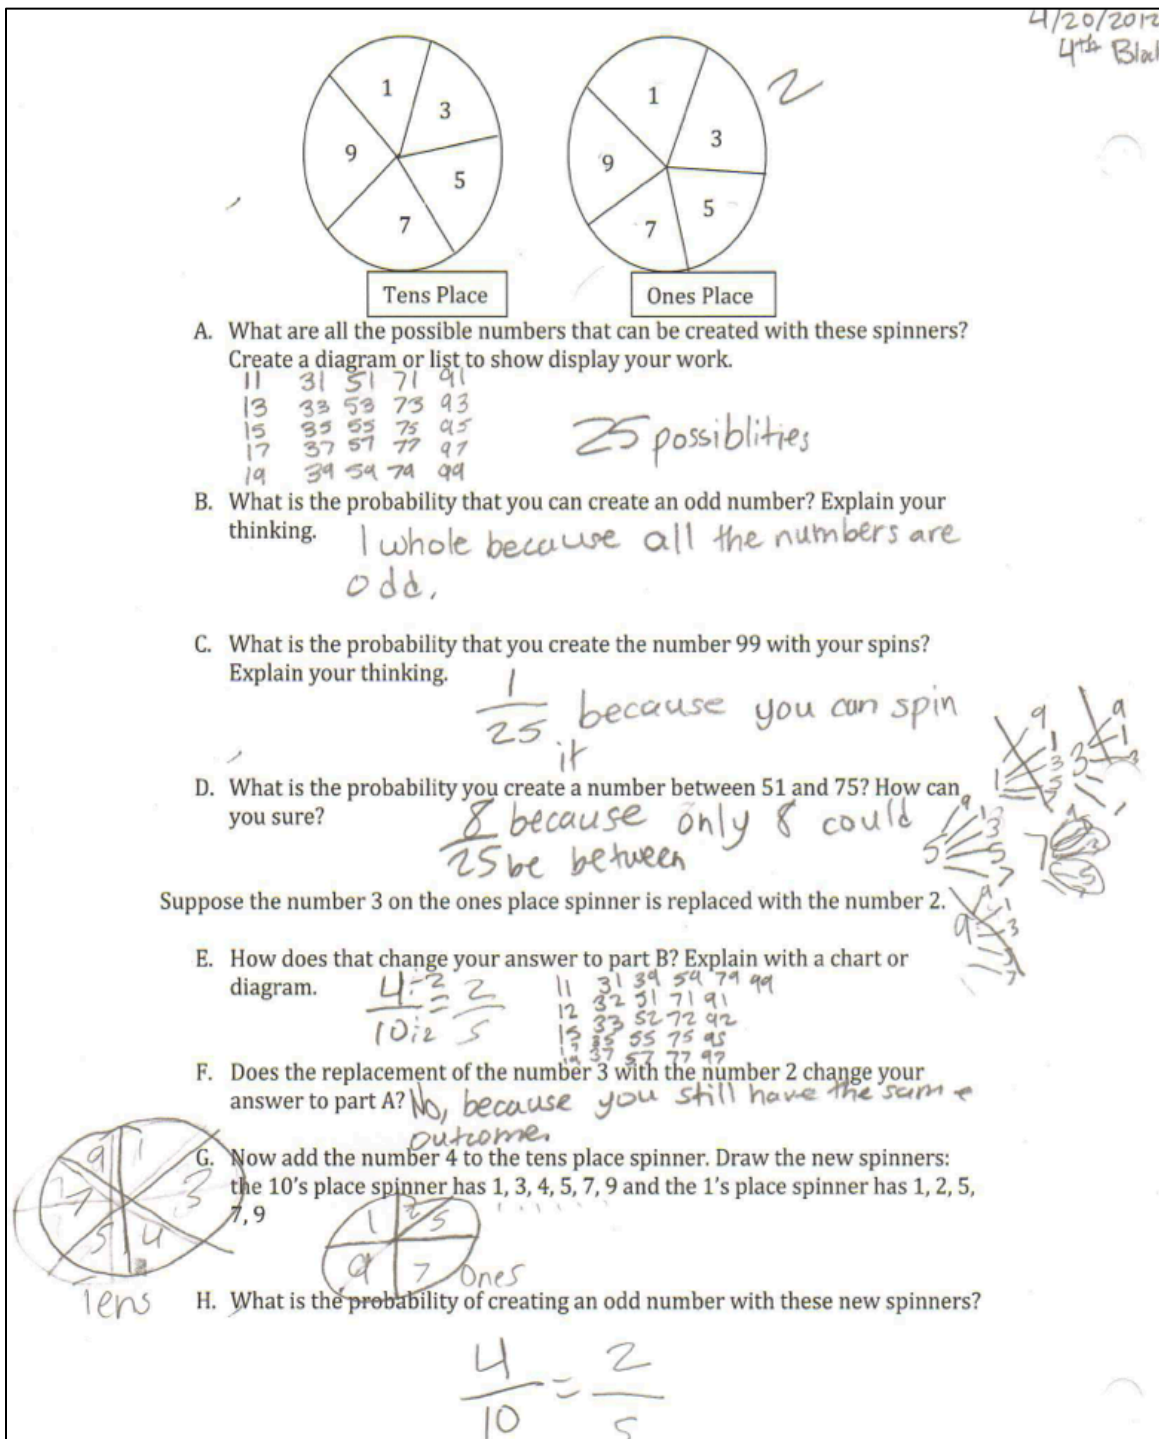 4/20/2012
4th
1
3
5
7
9
1
3
5
7
9
2
Tens Place
Ones Place
A. What are all the possible numbers that can be created with these spinners?
Create a diagram or list to show display your work.
11 31 51 71 91
13 33 53 73 93
15 35 55 75 95
17 37 57 77 97
19 39 59 79 99
25 possiblities
B. What is the probability that you can create an odd number? Explain your
thinking.
1 whole because all the numbers are
odd.
C. What is the probability that you create the number 99 with your spins?
Explain your thinking.
1/25 because you can spin
it
D. What is the probability you create a number between 51 and 75? How can
you sure?
8/25 because only 8 could
be between
Suppose the number 3 on the ones place spinner is replaced with the number 2.
E. How does that change your answer to part B? Explain with a chart or
diagram.
4÷2/10÷2 = 2/5
11 31 39 59 79 99
12 32 51 71 91
15 33 52 72 92
17 35 55 75 95
19 37 57 77 97
F. Does the replacement of the number 3 with the number 2 change your
answer to part A?
No, because you still have the same
outcome.
G. Now add the number 4 to the tens place spinner. Draw the new spinners:
the 10's place spinner has 1, 3, 4, 5, 7, 9 and the 1's place spinner has 1, 2, 5,
7, 9
9 1 3 4 5 7
Tens
1 2 5 7 9
Ones
H. What is the probability of creating an odd number with these new spinners?
4/10 = 2/5